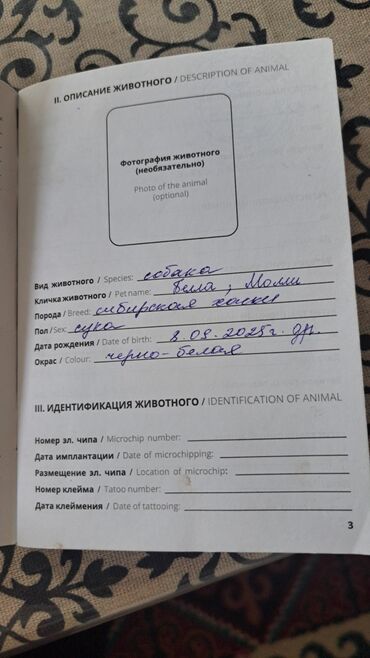 II. ОПИСАНИЕ ЖИВОТНОГО / DESCRIPTION OF ANIMAL
Фотография животного
(необязательно)
Photo of the animal
(optional)
Вид животного / Species: собака
Кличка животного / Pet name: Белла, Молли
Порода / Breed: сибирская хаски
Пол / Sex: сука
Дата рождения / Date of birth: 8.09.2025г. др.
Окрас / Colour: черно-белая
III. ИДЕНТИФИКАЦИЯ ЖИВОТНОГО / IDENTIFICATION OF ANIMAL
Номер эл. чипа / Microchip number:
Дата имплантации / Date of microchipping:
Размещение эл. чипа / Location of microchip:
Номер клейма / Tatoo number:
Дата клеймения / Date of tattooing:
3